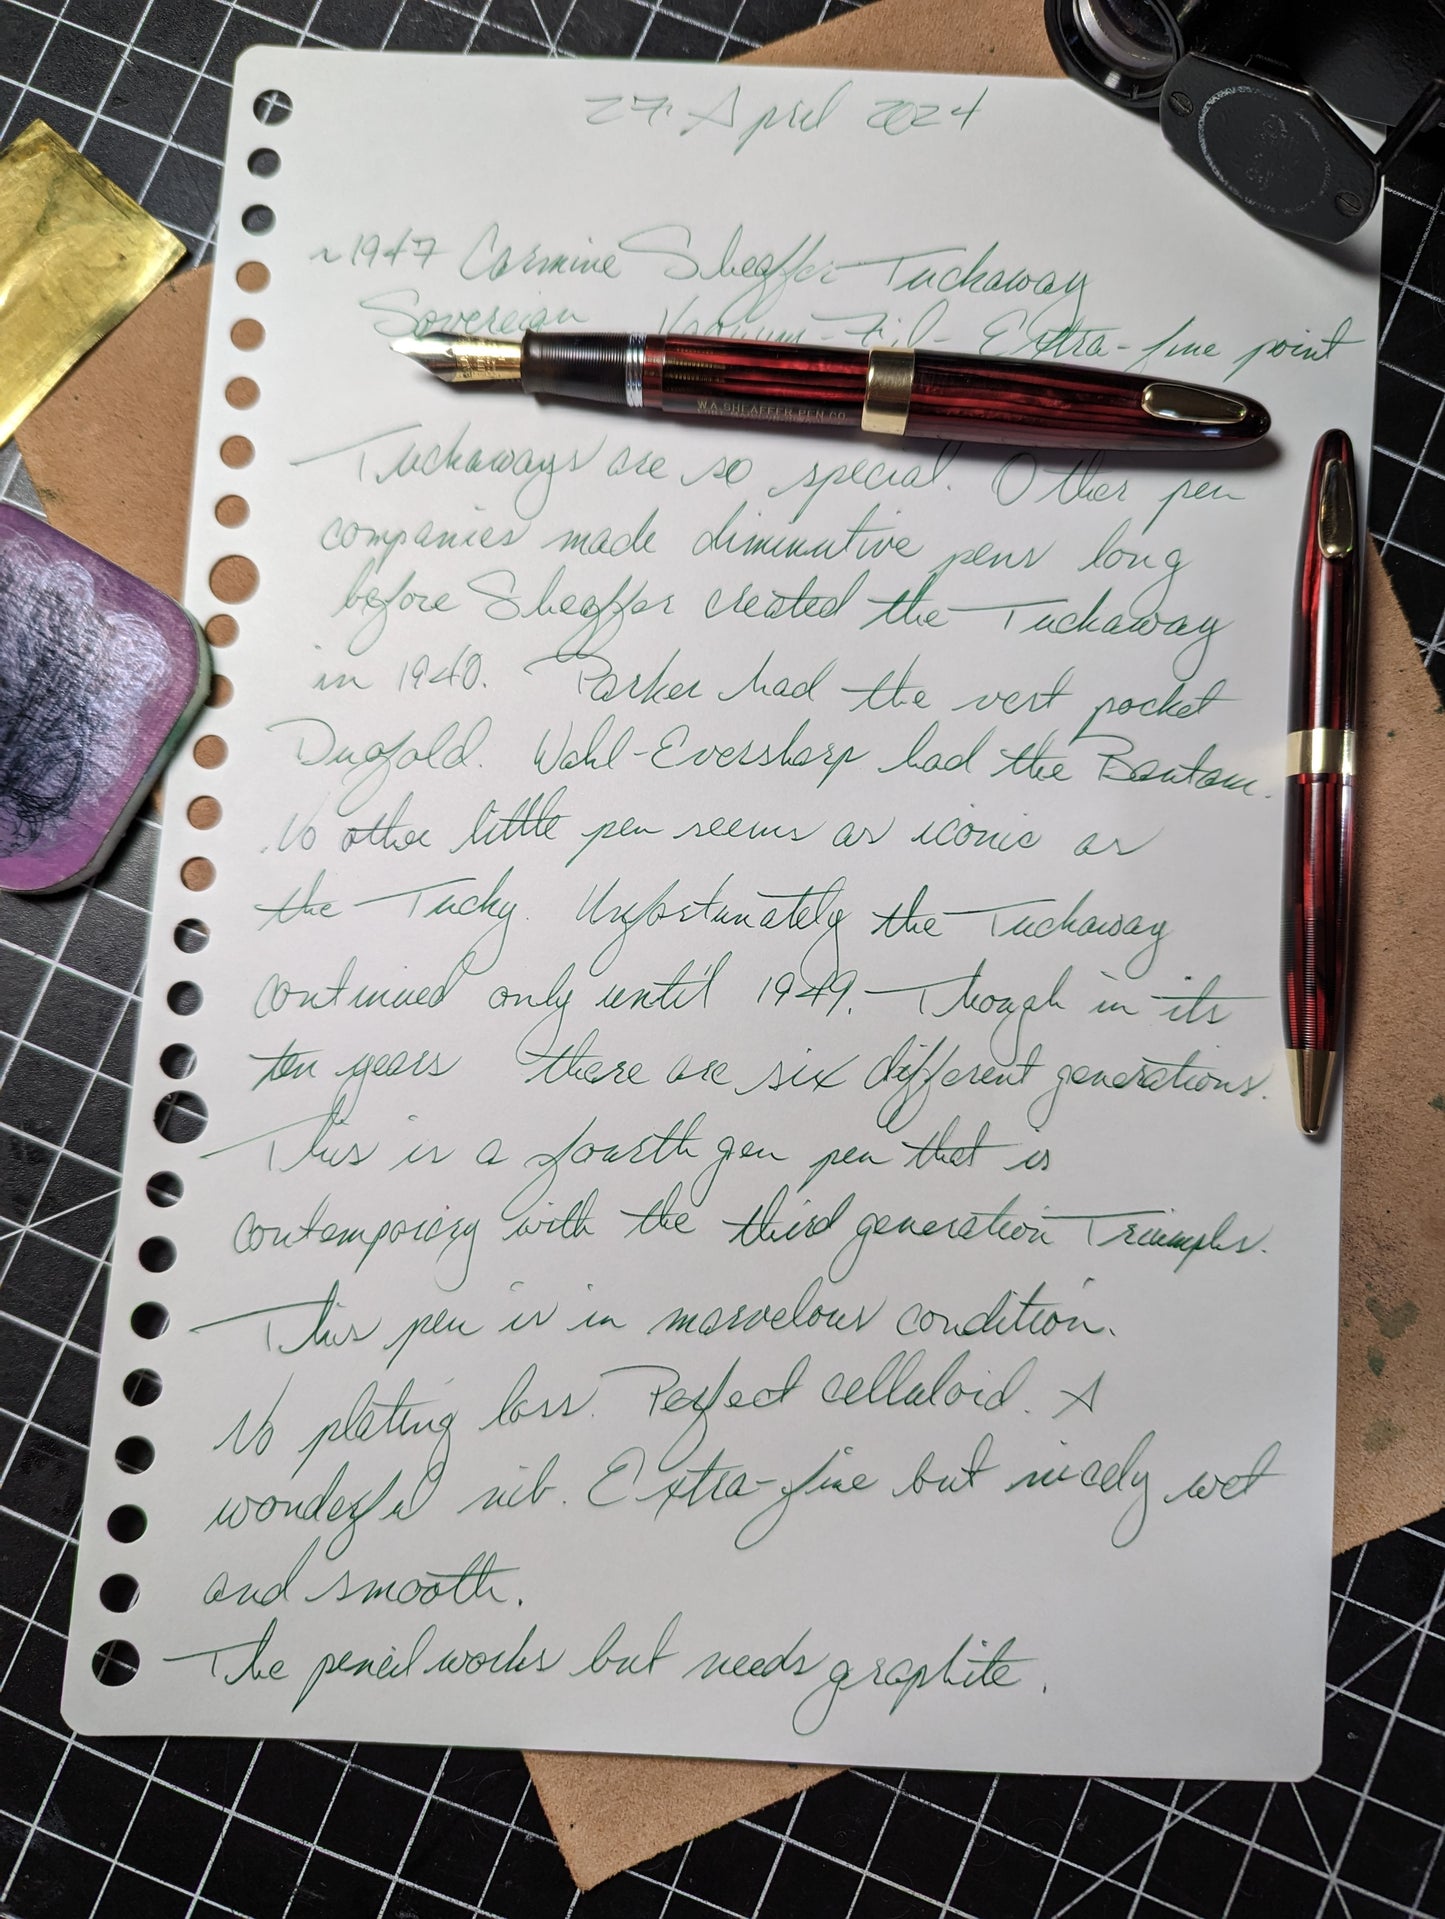 27 April 2024
~1947 Carmine Sheaffer Tuckaway
Sovereign Vacuum-Fil- Extra-fine point
W.A. SHEAFFER PEN CO.
Tuckaways are so special. Other pen
companies made diminutive pens long
before Sheaffer created the Tuckaway
in 1940. Parker had the vest pocket
Duofold. Wahl-Eversharp had the Bantam.
No other little pen seems as iconic as
the Tucky. Unfortunately the Tuckaway
continued only until 1949. Though in its
ten years there are six different generations.
This is a fourth gen pen that is
contemporary with the third generation Triumphs.
This pen is in marvelous condition.
No plating loss. Perfect celluloid. A
wonderful nib. Extra-fine but nicely wet
and smooth.
The pencil works but needs graphite.